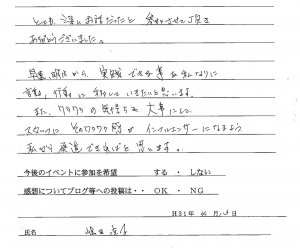 とても深いお話だったと思わさせて頂き
ありがとうございました。
早速、明日から、実践できる事を私なりに
言動、行動に移していきたいと思います。
また、ワクワクの気持ちを大事にして
スタッフにそのワクワク感がインフルエンサーになるよう
私から発信できればと思います。
今後のイベントに参加を希望 する・しない
感想についてブログ等への投稿は・・ OK ・ NG
H31年 月 日
氏名